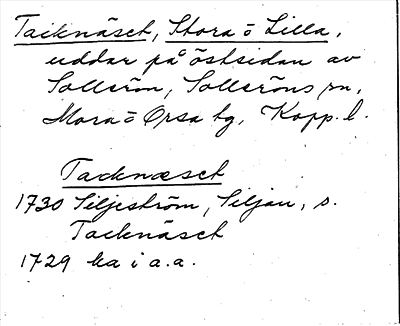 Tacknäset, Stora o Lilla,
uddar på östsidan av
Sollerön, Solleröns sn,
Mora o Orsa tg, Kopp. l.
Tacknæset
1730 Siljeström, Siljan, s.
Tacknäset
1729 ka i a.a.